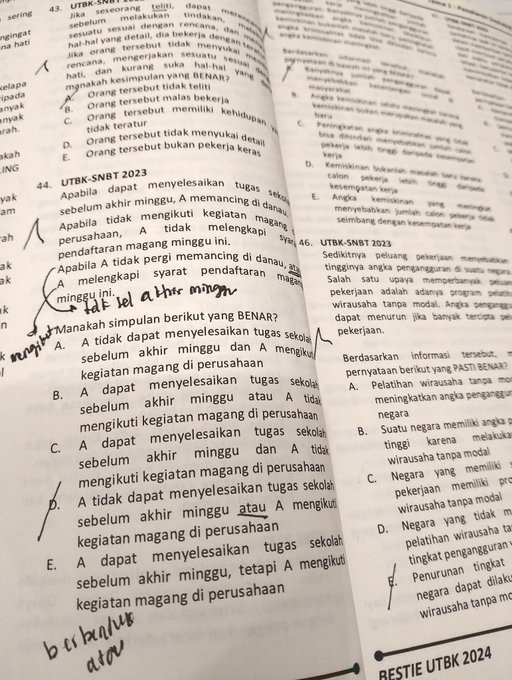 sering
ngingat
na hati
kelapa
ripada
anyak
anyak
rah.
akah
ING
yak
am
ah
ak
ak
k
n
k
43. UTBK-SNBT
Jika seseorang teliti, dapat
sebelum melakukan tindakan,
sesuatu sesuai dengan rencana, dan
hal-hal yang detail, dia bekerja dengan
Jika orang tersebut tidak menyukai
rencana, mengerjakan sesuatu sesuai
hati, dan kurang suka hal-hal yang
manakah kesimpulan yang BENAR?
A. Orang tersebut tidak teliti
B. Orang tersebut malas bekerja
C. Orang tersebut memiliki kehidupan
tidak teratur
D. Orang tersebut tidak menyukai detail
E. Orang tersebut bukan pekerja keras
44. UTBK-SNBT 2023
Apabila dapat menyelesaikan tugas
sebelum akhir minggu, A memancing di danau.
Apabila tidak mengikuti kegiatan magang
perusahaan, A tidak melengkapi
pendaftaran magang minggu ini.
Apabila A tidak pergi memancing di danau,
A melengkapi syarat pendaftaran
minggu ini.
tak sel akhir minggu
mengikut
Manakah simpulan berikut yang BENAR?
A. A tidak dapat menyelesaikan tugas sekolah
sebelum akhir minggu dan A mengikuti
kegiatan magang di perusahaan
B. A dapat menyelesaikan tugas sekolah
sebelum akhir minggu atau A tidak
mengikuti kegiatan magang di perusahaan
C. A dapat menyelesaikan tugas sekolah
sebelum akhir minggu dan A tidak
mengikuti kegiatan magang di perusahaan
D. A tidak dapat menyelesaikan tugas sekolah
sebelum akhir minggu atau A mengikuti
kegiatan magang di perusahaan
E. A dapat menyelesaikan tugas sekolah
sebelum akhir minggu, tetapi A mengikuti
kegiatan magang di perusahaan
berbentuk
atau
Berdasarkan informasi
masyarakat
B. Angka kemiskinan selalu meningkat
kemiskinan bukan merupakan masalah yang
baru
C. Peningkatan angka kriminalitas yang tidak
bisa dihindari menyebabkan jumlah calon
pekerja lebih tinggi daripada kesempatan
kerja
D. Kemiskinan bukanlah masalah baru karena
calon pekerja lebih tinggi daripada
kesempatan kerja
E. Angka kemiskinan yang meningkat
menyebabkan jumlah calon pekerja tidak
seimbang dengan kesempatan kerja
46. UTBK-SNBT 2023
Sedikitnya peluang pekerjaan menyebabkan
tingginya angka pengangguran di suatu negara.
Salah satu upaya memperbanyak
pekerjaan adalah adanya program
wirausaha tanpa modal. Angka
dapat menurun jika banyak tercipta
pekerjaan.
Berdasarkan informasi tersebut,
pernyataan berikut yang PASTI BENAR?
A. Pelatihan wirausaha tanpa
meningkatkan angka
negara
B. Suatu negara memiliki angka
tinggi karena
wirausaha tanpa modal
C. Negara yang memiliki
pekerjaan memiliki
wirausaha tanpa modal
D. Negara yang tidak
pelatihan wirausaha
tingkat pengangguran
E. Penurunan tingkat
negara dapat
wirausaha tanpa
BESTIE UTBK 2024